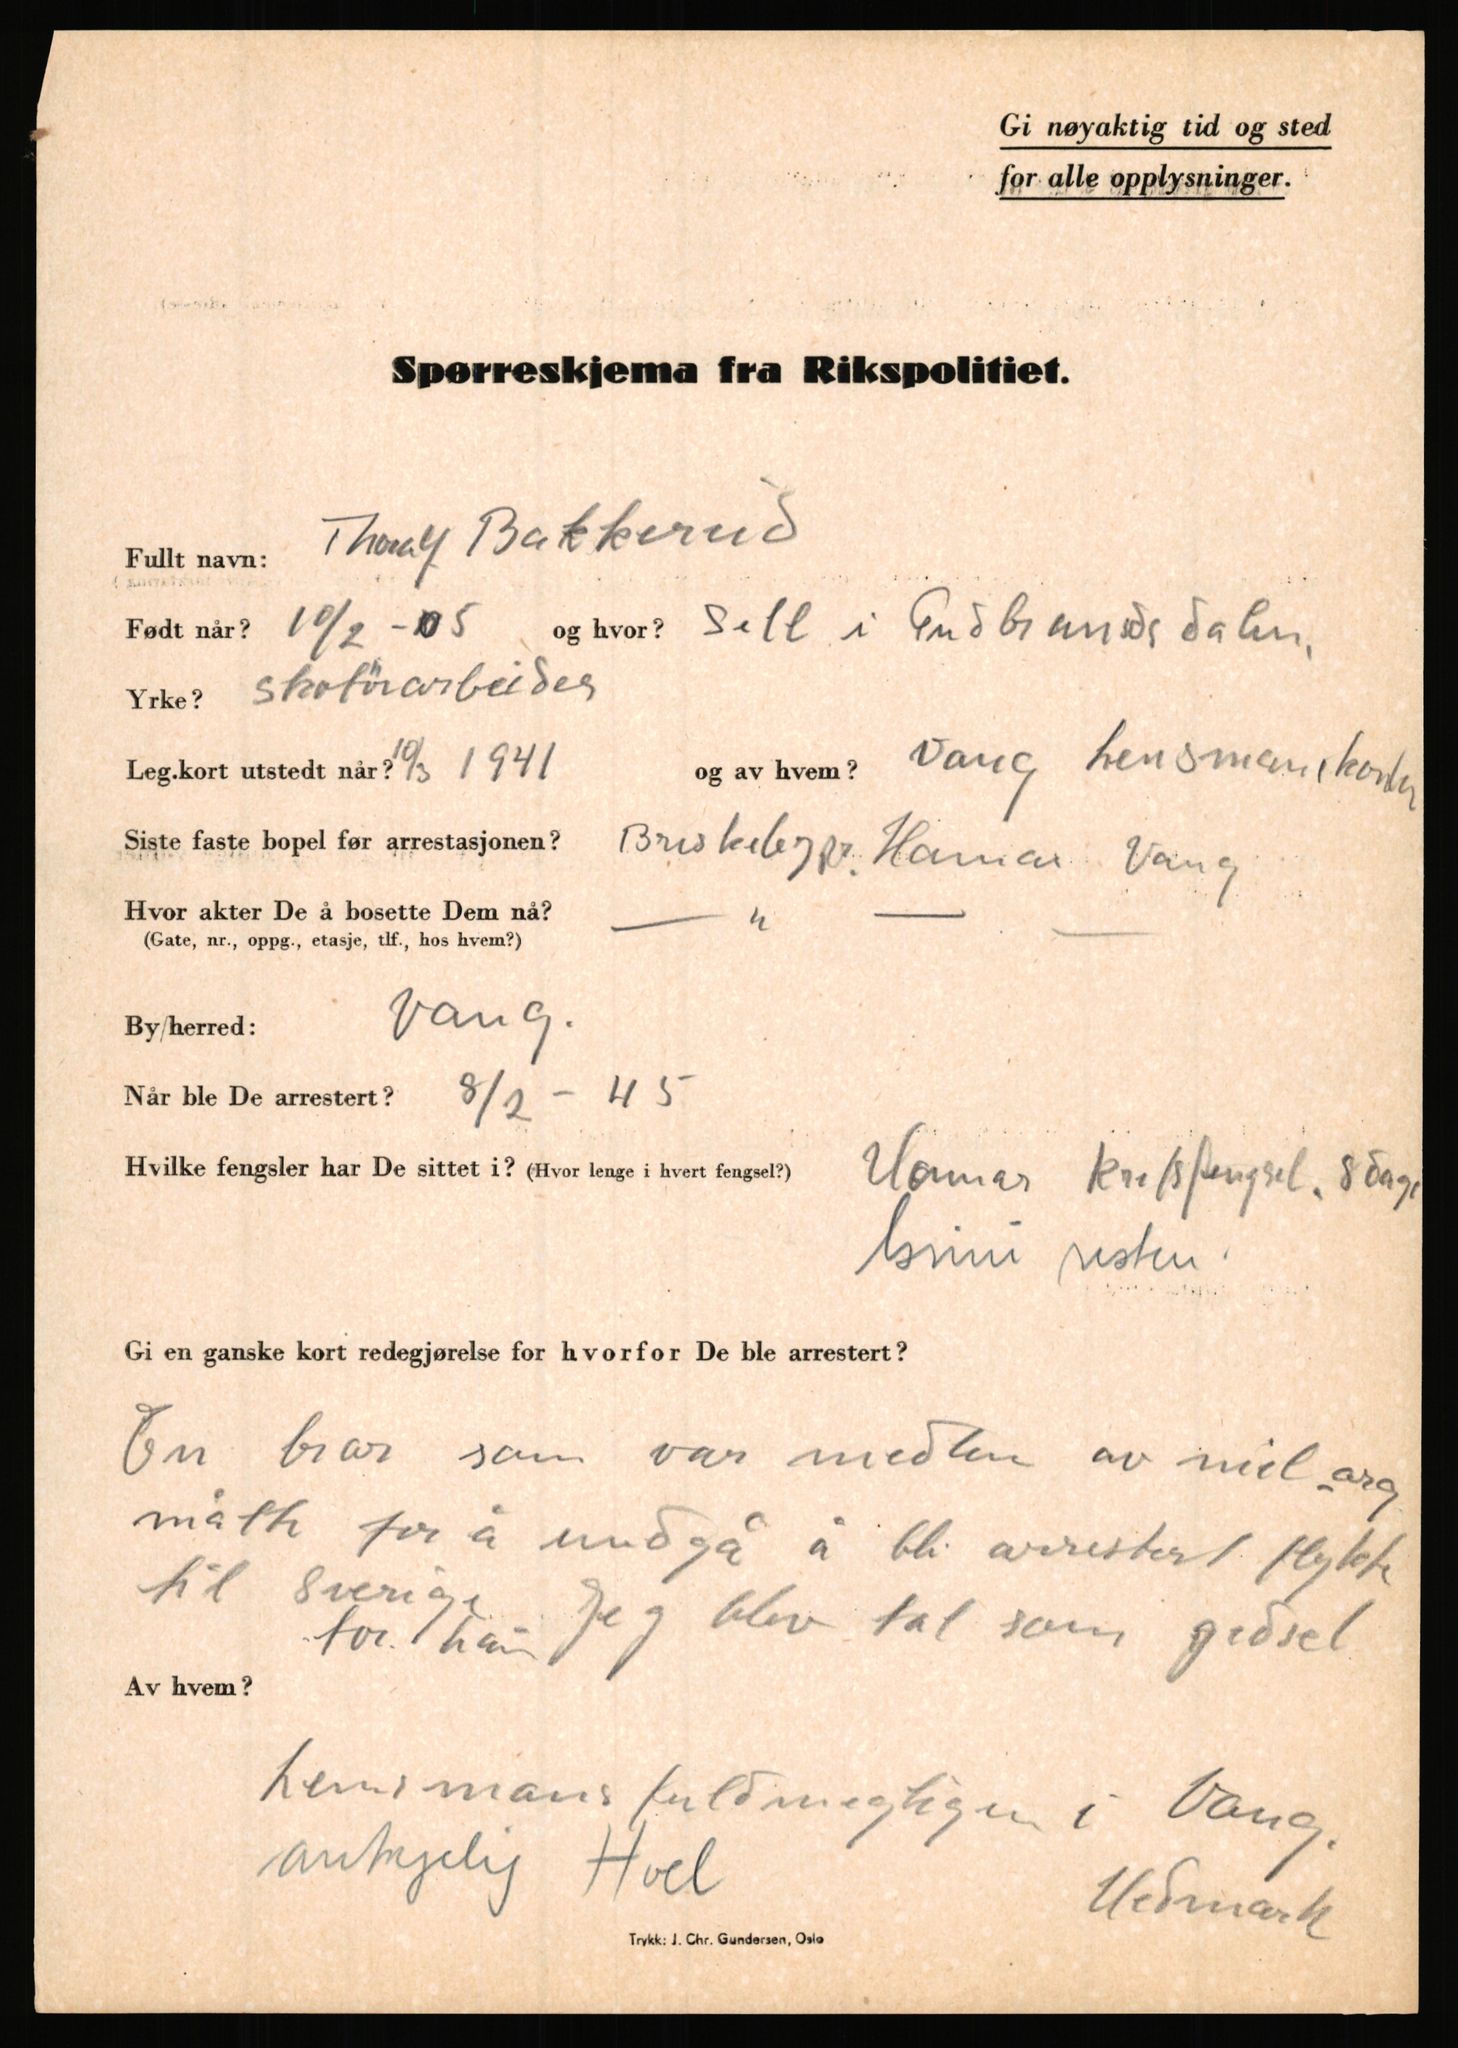 Gi nøyaktig tid og sted
for alle opplysninger.
Spørreskjema fra Rikspolitiet.
Fullt navn: Thoralf Bakkerud
Født når? 10/2 - 05 og hvor? Sell i Gudbrandsdalen.
Yrke? skotöiarbeider
Leg.kort utstedt når? 10/3 1941 og av hvem? Vang lensmanskontor
Siste faste bopel før arrestasjonen? Briskeby pr. Hamar Vang
Hvor akter De å bosette Dem nå? — " — —
(Gate, nr., oppg., etasje, tlf., hos hvem?)
By/herred: Vang.
Når ble De arrestert? 8/2 - 45
Hvilke fengsler har De sittet i? (Hvor lenge i hvert fengsel?) Hamar kretsfengsel. 8 dage
Grini resten.
Gi en ganske kort redegjørelse for hvorfor De ble arrestert?
En bror som var medlem av mil_org
måtte for å undgå å bli arrestert flykte
til Sverige Jeg blev tat som gidsel
for. ham
Av hvem?
lensmans fuldmegtigen i Vang.
Hoel
Hedmark
Trykk: J. Chr. Gundersen, Oslo